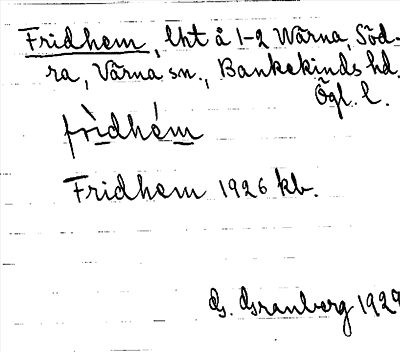 Fridhem, lht å 1-2 Wärna, Söd-
ra, Värna sn., Bankekinds hd.
Ögl. l.
frìdhém
Fridhem 1926 kb.
G. Granberg 1929